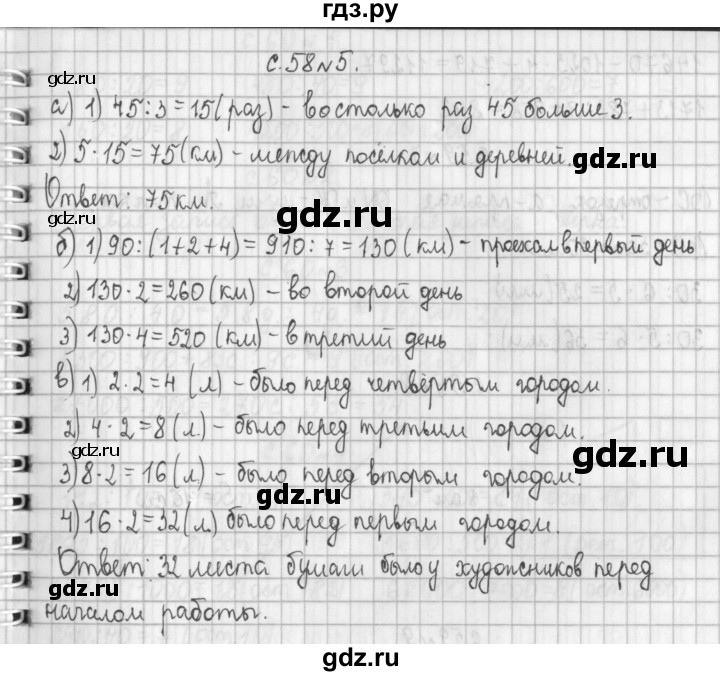 гдз.ру
с.58 №5.
gdz.ru
а) 1) 45:3=15(раз) - во столько раз 45 больше 3.
2) 5·15=75(км) - между посёлком и деревней. gdz.ru
gdz.ru
Ответ: 75км.
gdz.ru
б) 1) 90:(1+2+4)=910:7=130(км) - проехал в первый день
2) 130·2=260(км) - во второй день
3) 130·4=520(км) - в третий день
gdz.ru
в) 1) 2·2=4 (л) - было перед четвёртым городом.
2) 4·2=8(л) - было перед третьим городом.
gdz.ru gdz.ru
3) 8·2=16(л) - было перед вторым городом.
gdz.ru
4) 16·2=32(л) было перед первым городом.
Ответ: 32 листа бумаги было у художников перед
gdz.ru
началом работы.
gdz.ru